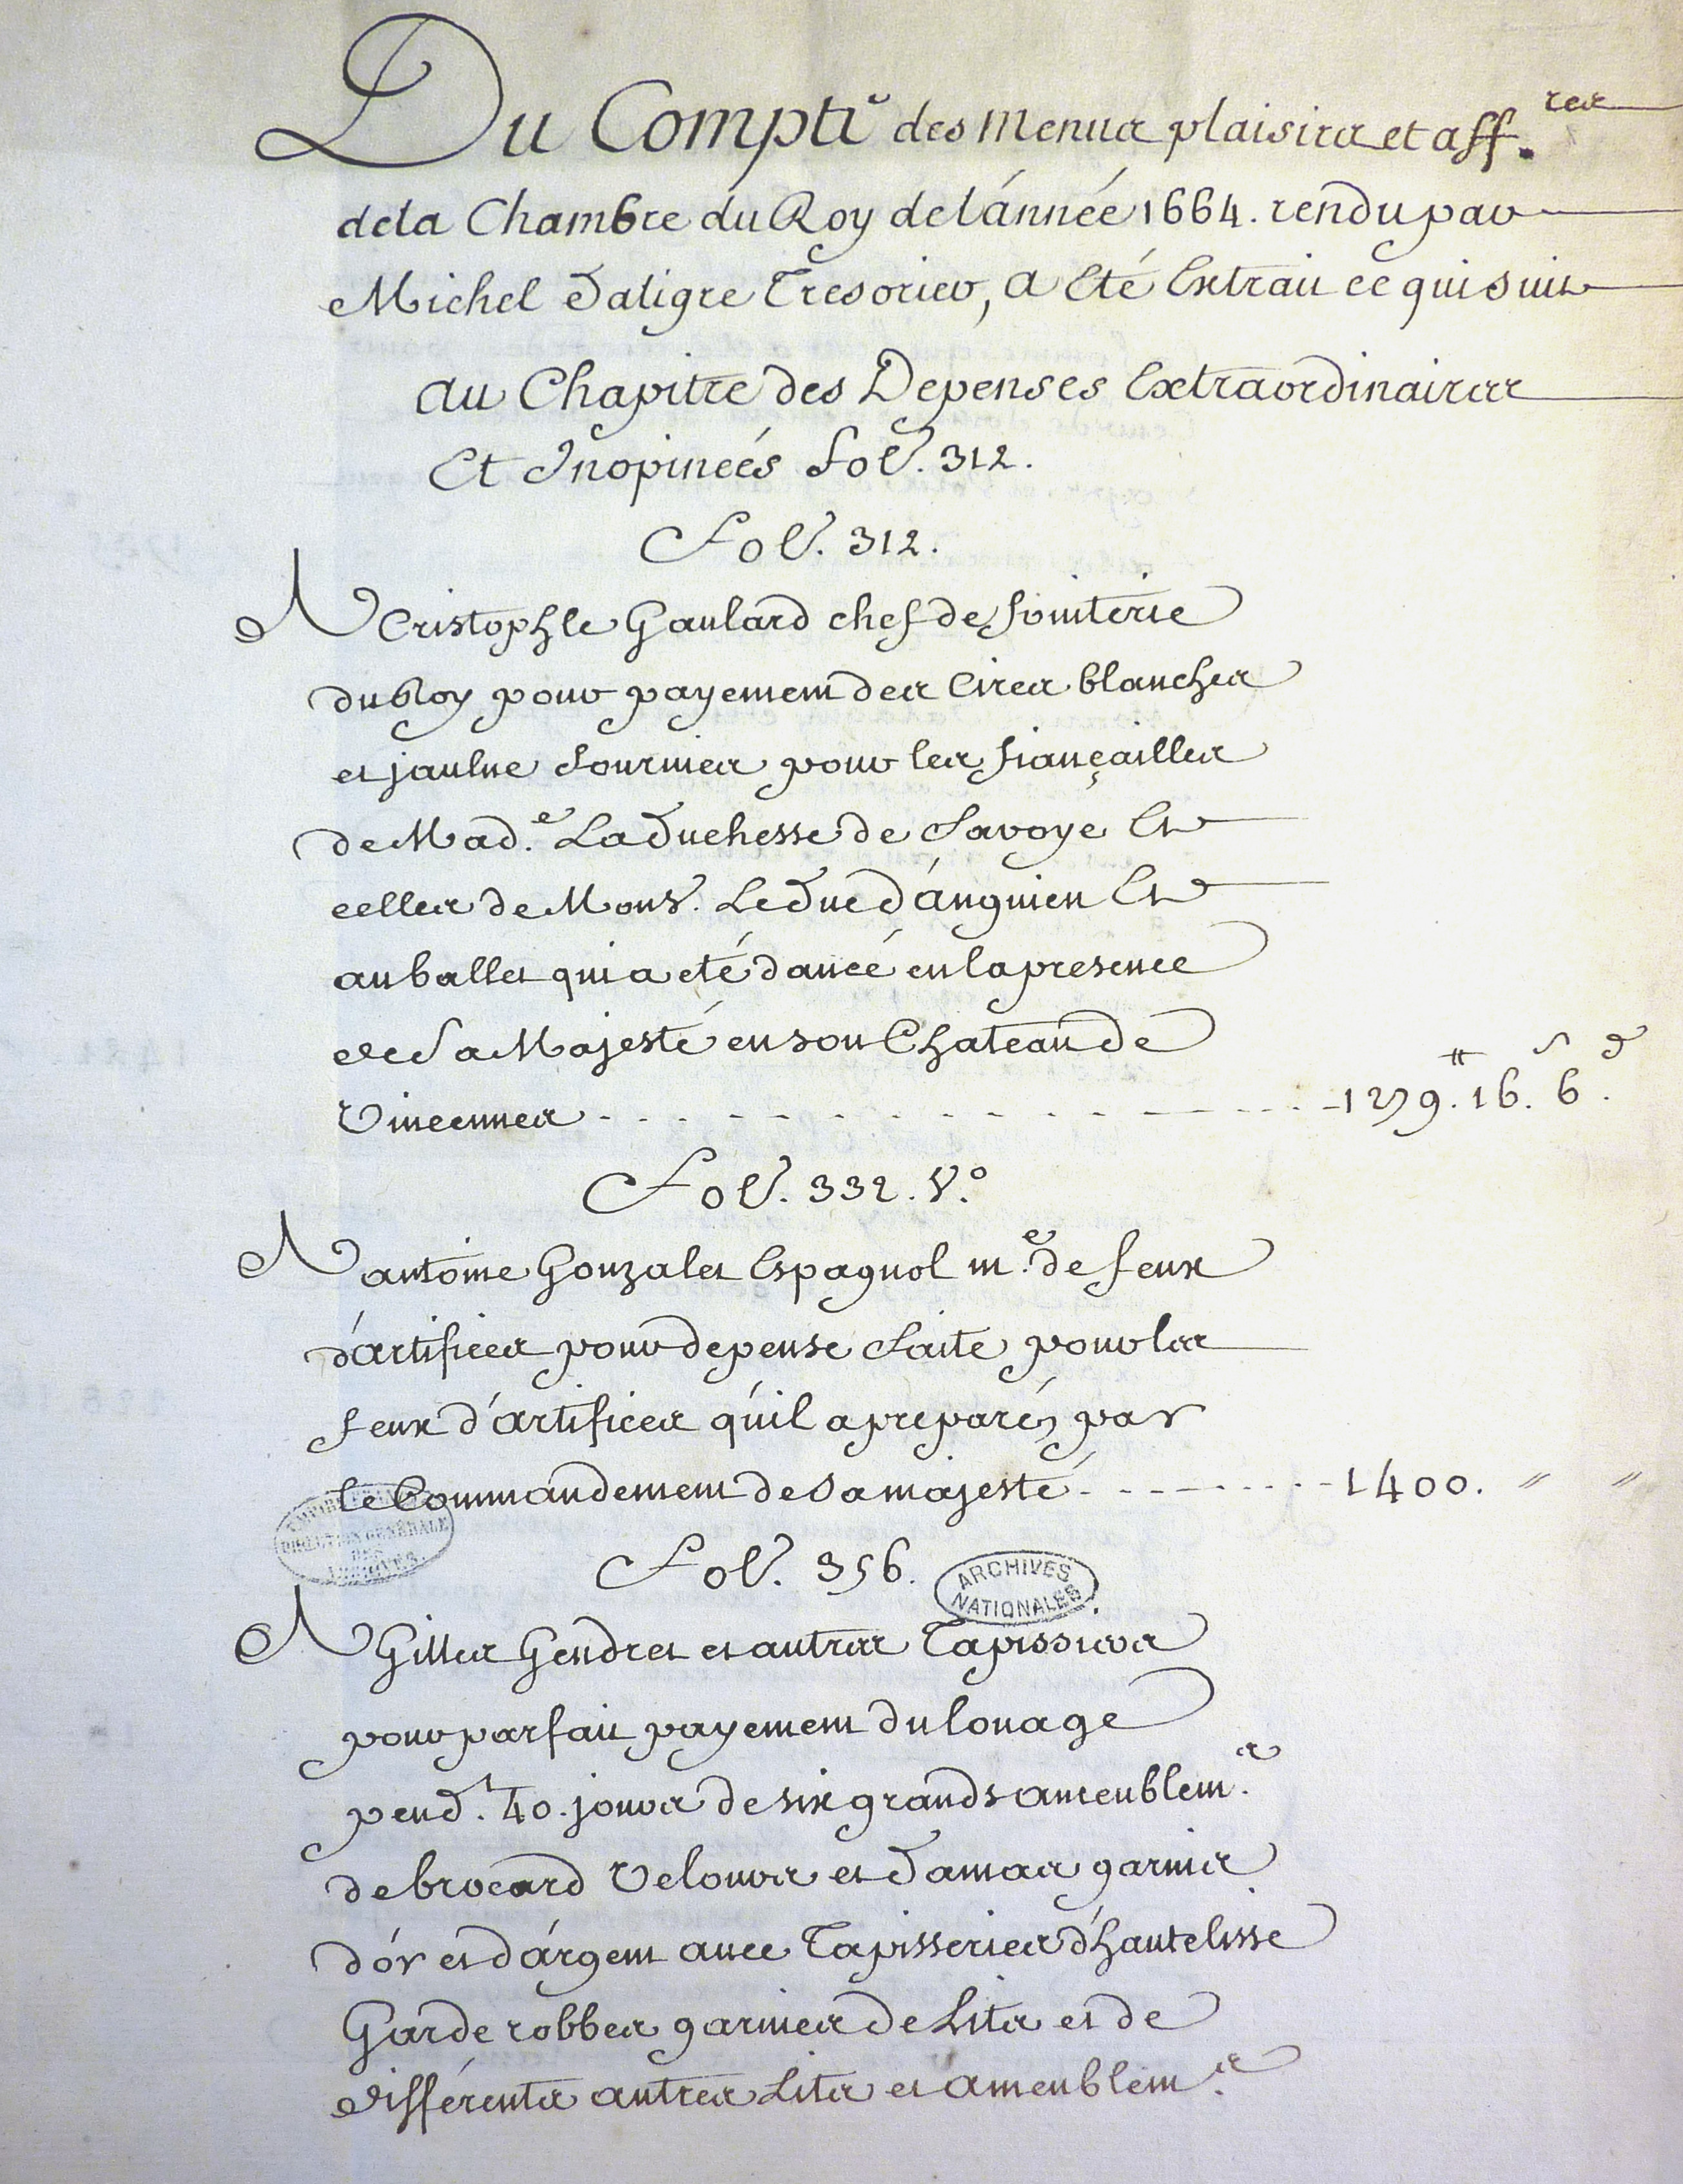 Du Compte des Menus plaisirs et aff.res
dela Chambre du Roy de l'année 1664. rendu par
Michel Daligre Tresorier, a eté Extrait ce qui suit
au Chapitre des Depenses Extraordinaires
Et Inopineés fol. 312.
Fol. 312.
A Cristophle Gaulard chef de fruiterie
du Roy pour payement des Cires blanches
et jaulne fournies pour les fiançailles
de Mad.e La Duchesse de Savoye Et
celles de Monsr. Le Duc d'anguien Et
au ballet qui a eté dancé en la presence
de Sa Majesté en son Chateau de
Vincennes 1279.tt 16.s 6.d
Fol. 332. V.o
A antoine Gonzalet Espagnol m.e de feux
d'artifices pour depense faite pour les
feux d'artifices qu'il a preparéz par
le Commandement de Sa majesté 1400. " "
EMPIRE FRANÇAIS
DIRECTION GÉNÉRALE
DES
ARCHIVES.
Fol. 356.
ARCHIVES
NATIONALES.
A Gilles Gendret et autres Tapissiers
pour parfait payement du louage
pend.t 40. jours de six grands ameublem.s
de brocard Velours et Damas garnis
d'or et d'argent avec Tapisseries d'hautelisse
Garde robbes garnies de Lits et de
différents autres Lits et ameublem.s